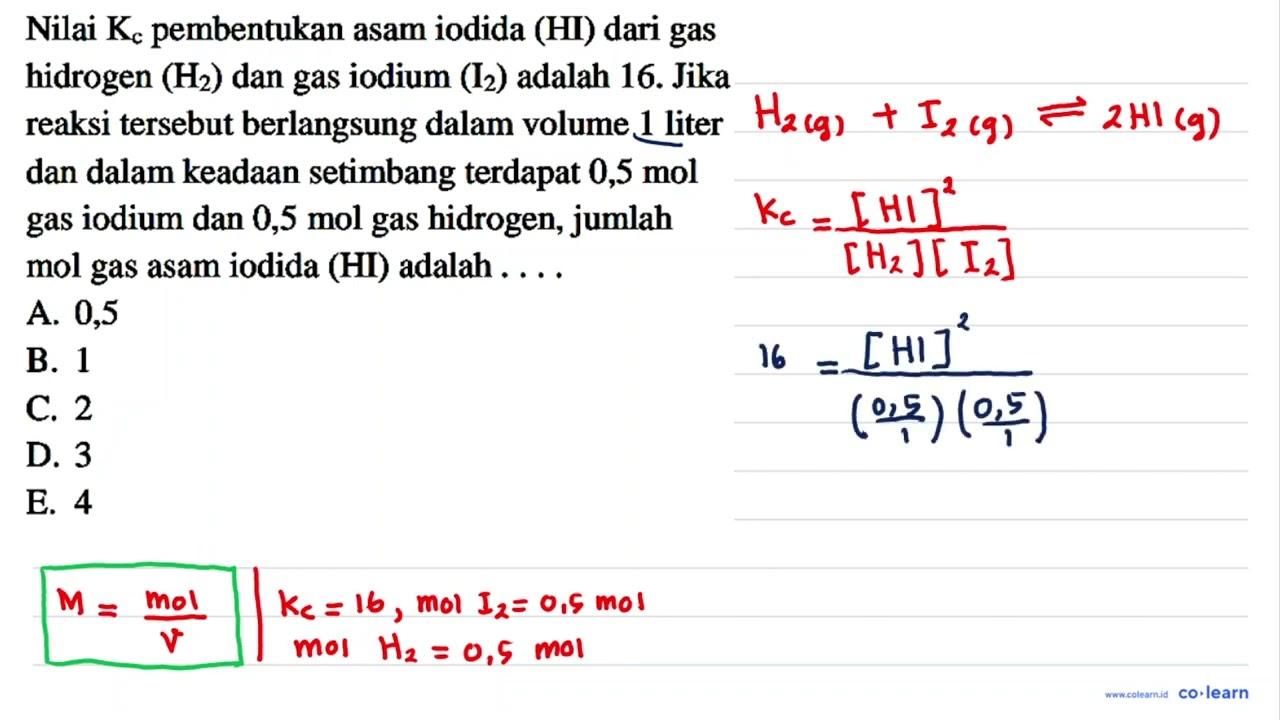 Nilai Kc pembentukan asam iodida (HI) dari gas
hidrogen (H₂) dan gas iodium (I₂) adalah 16. Jika
reaksi tersebut berlangsung dalam volume 1 liter
dan dalam keadaan setimbang terdapat 0,5 mol
gas iodium dan 0,5 mol gas hidrogen, jumlah
mol gas asam iodida (HI) adalah . . . .
A. 0,5
B. 1
C. 2
D. 3
E. 4
H₂(g) + I₂(g) ⇌ 2HI(g)
Kc = [HI]² / [H₂][I₂]
16 = [HI]² / (0,5/1)(0,5/1)
M = mol / V
Kc = 16, mol I₂ = 0,5 mol
mol H₂ = 0,5 mol
www.colearn.id co·learn